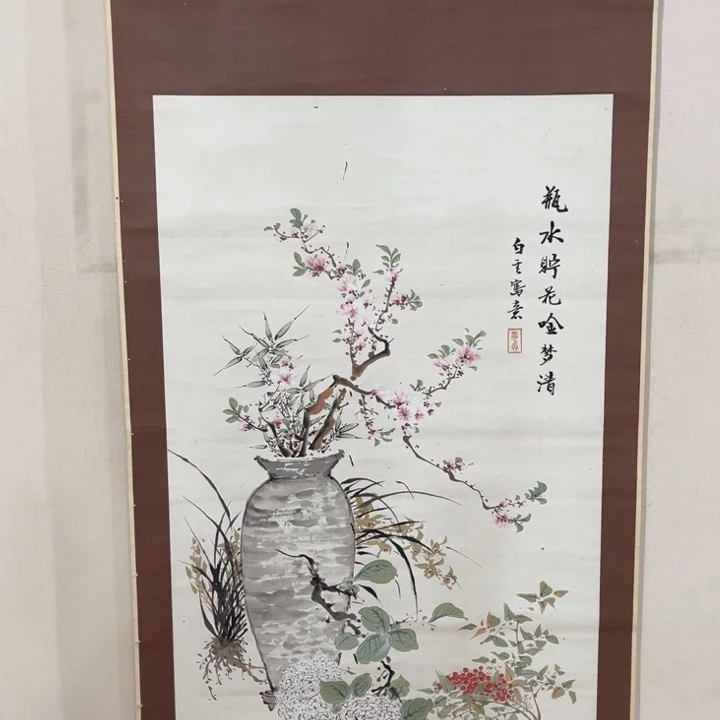 瓶水貯花唫梦清
白云寫意